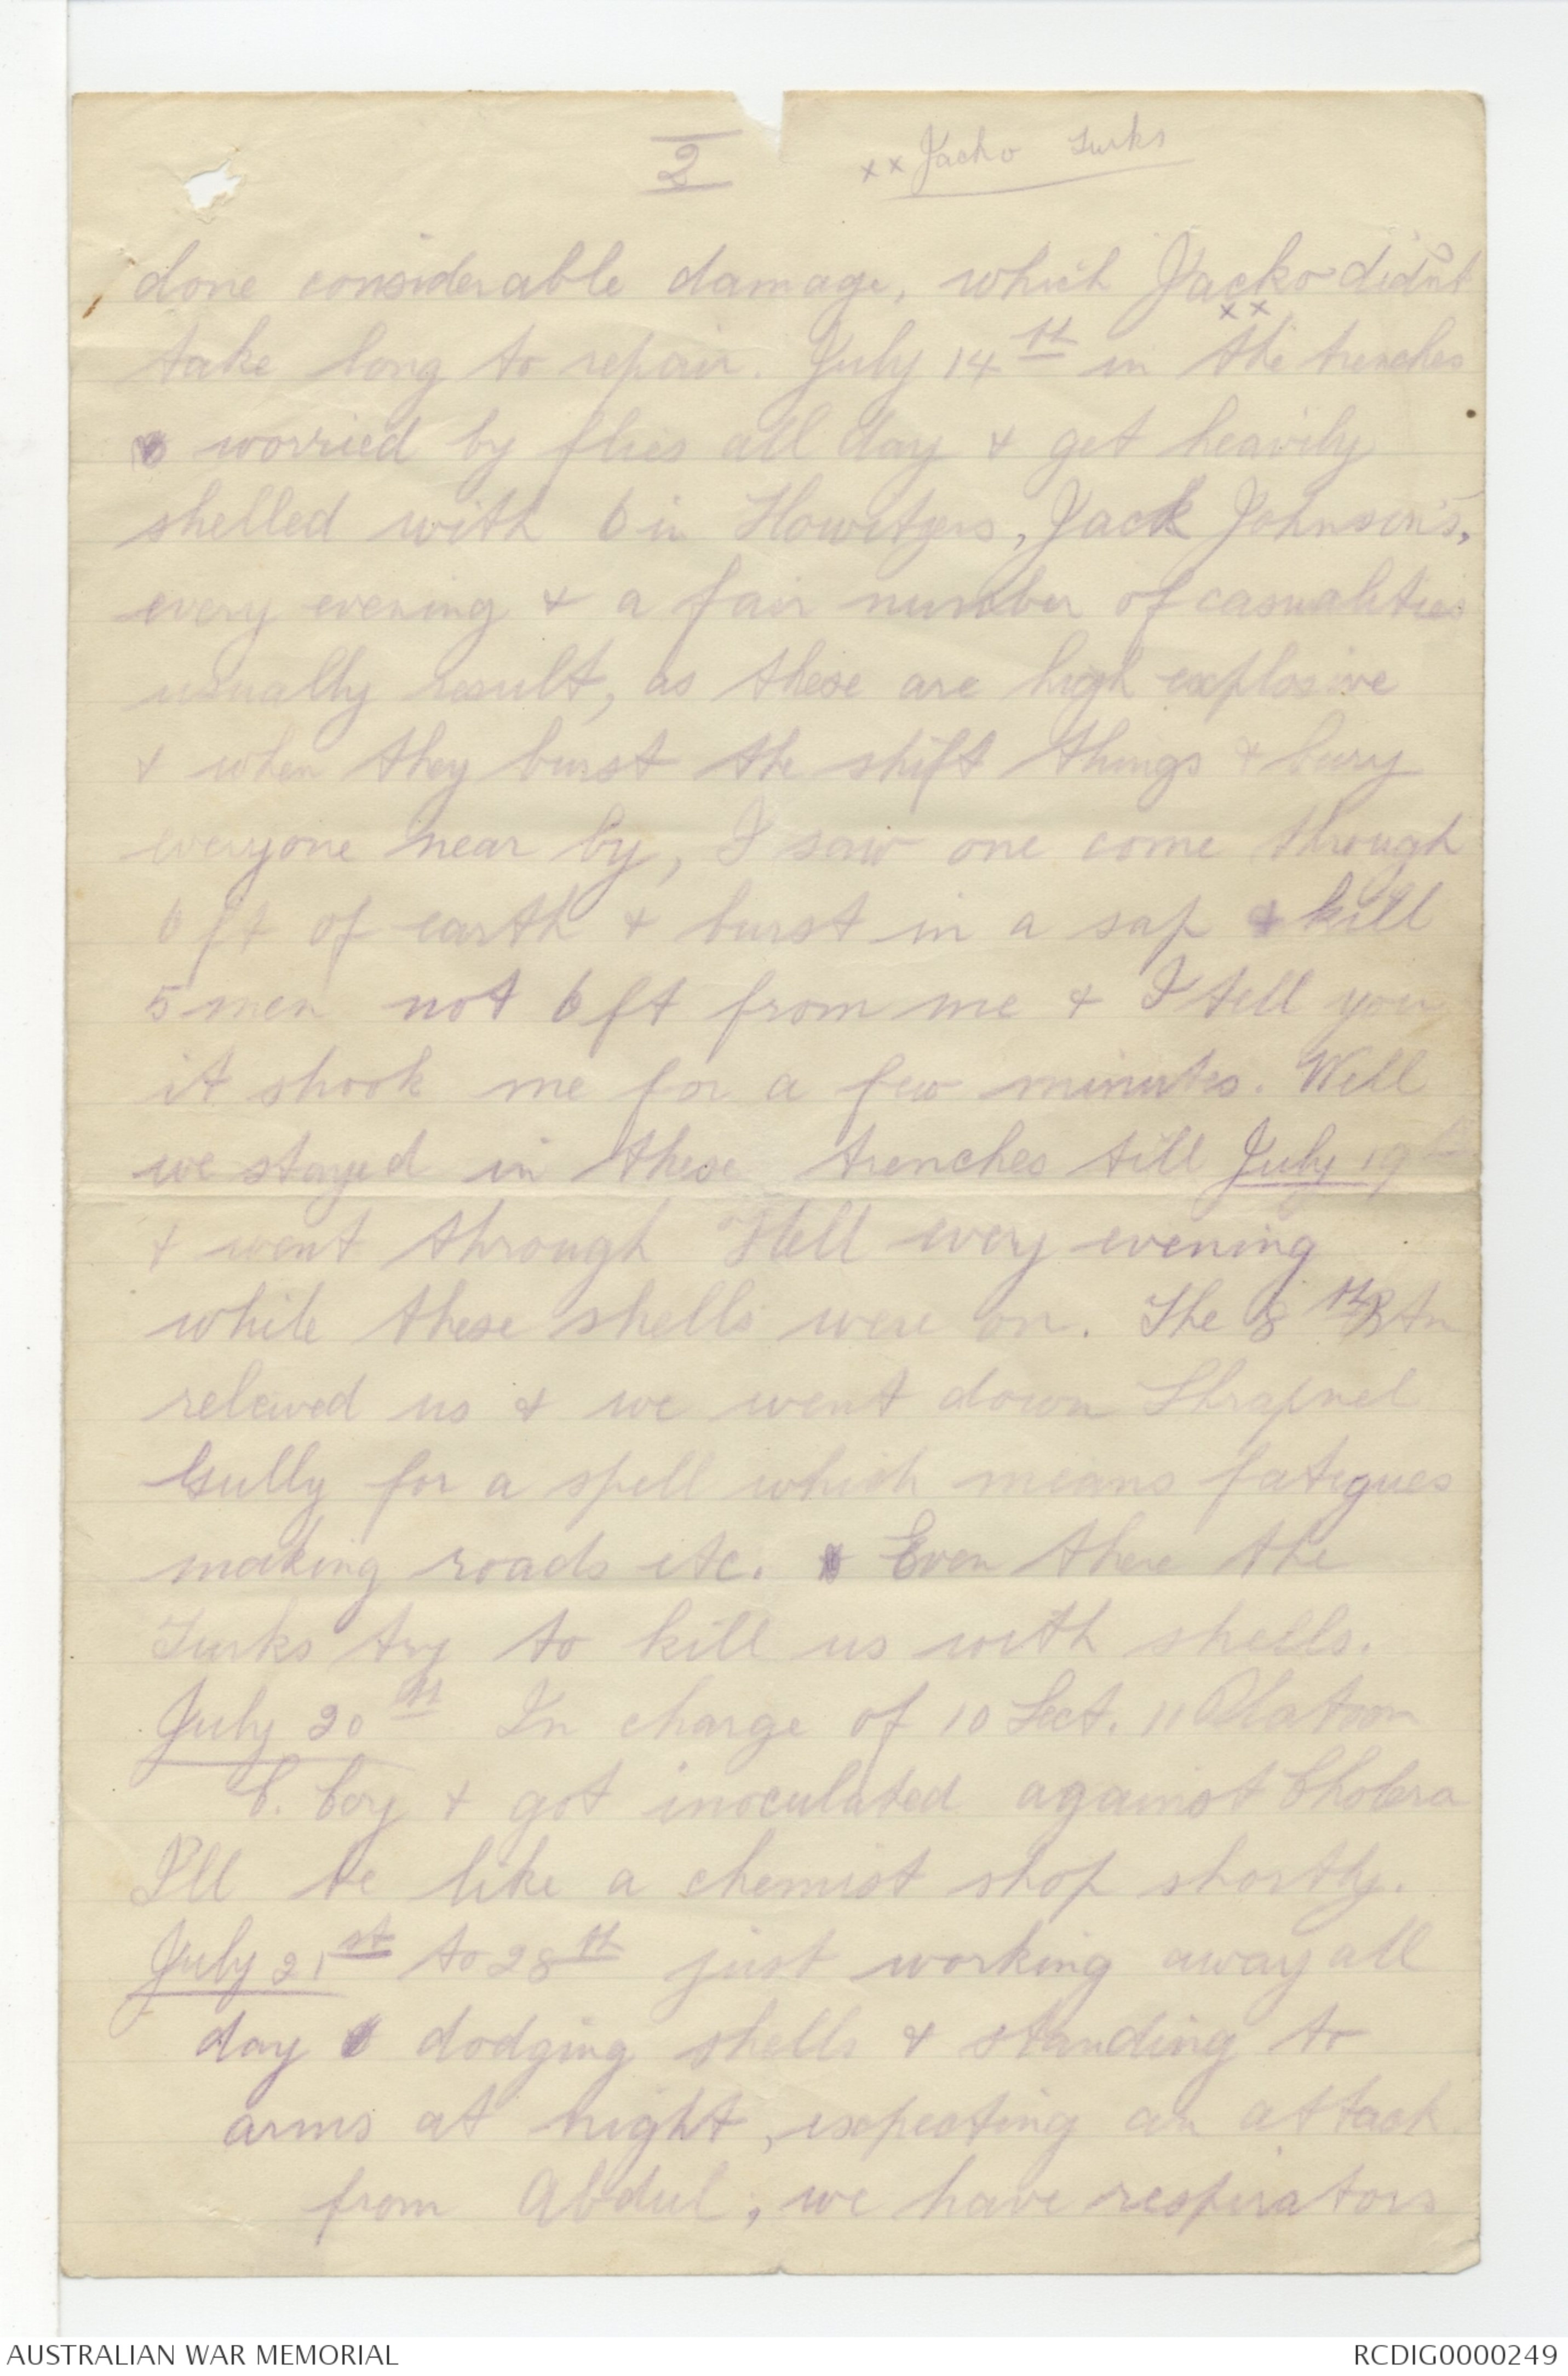 2
xx Jacko Turks
done considerable damage, which Jacko didn't
xx
take long to repair. July 14th in the trenches
worried by flies all day & get heavily
shelled with 6 in Howitzers, Jack Johnson's,
every evening & a fair number of casualities
usually result, as these are high explosive
& when they burst the shift things & bury
everyone near by, I saw one come through
6 ft of earth & burst in a sap & kill
5 men not 6 ft from me & I tell you
it shook me for a few minutes. Well
we stayed in these trenches till July 19th
& went through Hell every evening
while these shells were on. The 8th Btn
releived us & we went down Shrapnel
Gully for a spell which means fatigues
making roads etc. Even there the
Turks try to kill us with shells.
July 20th In charge of 10 Sect. 11 Platoon
C. Coy & got inoculated against Cholera
I'll be like a chemist shop shortly.
July 21st to 28th just working away all
day dodging shells & standing to
arms at night, expecting an attack
from Abdul, we have respirators
AUSTRALIAN WAR MEMORIAL
RCDIG0000249